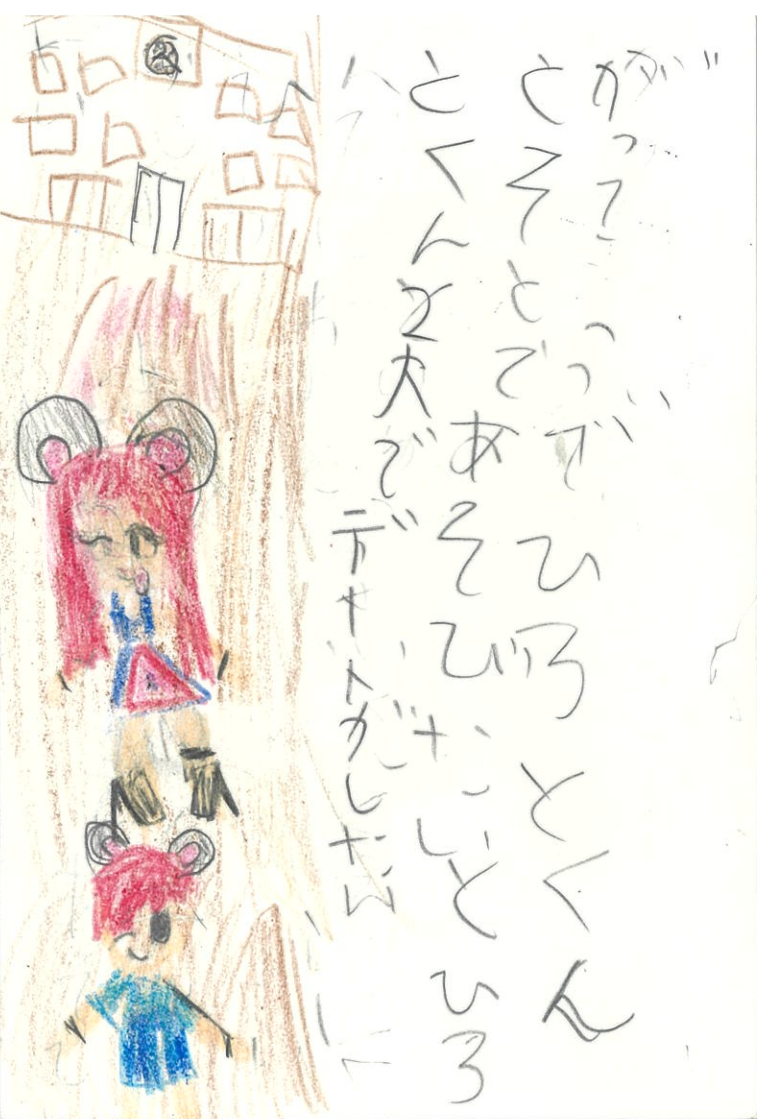 がっこうで ひろとくん
とそとであそびたいとひろ
とくんと2人でデートがしたい